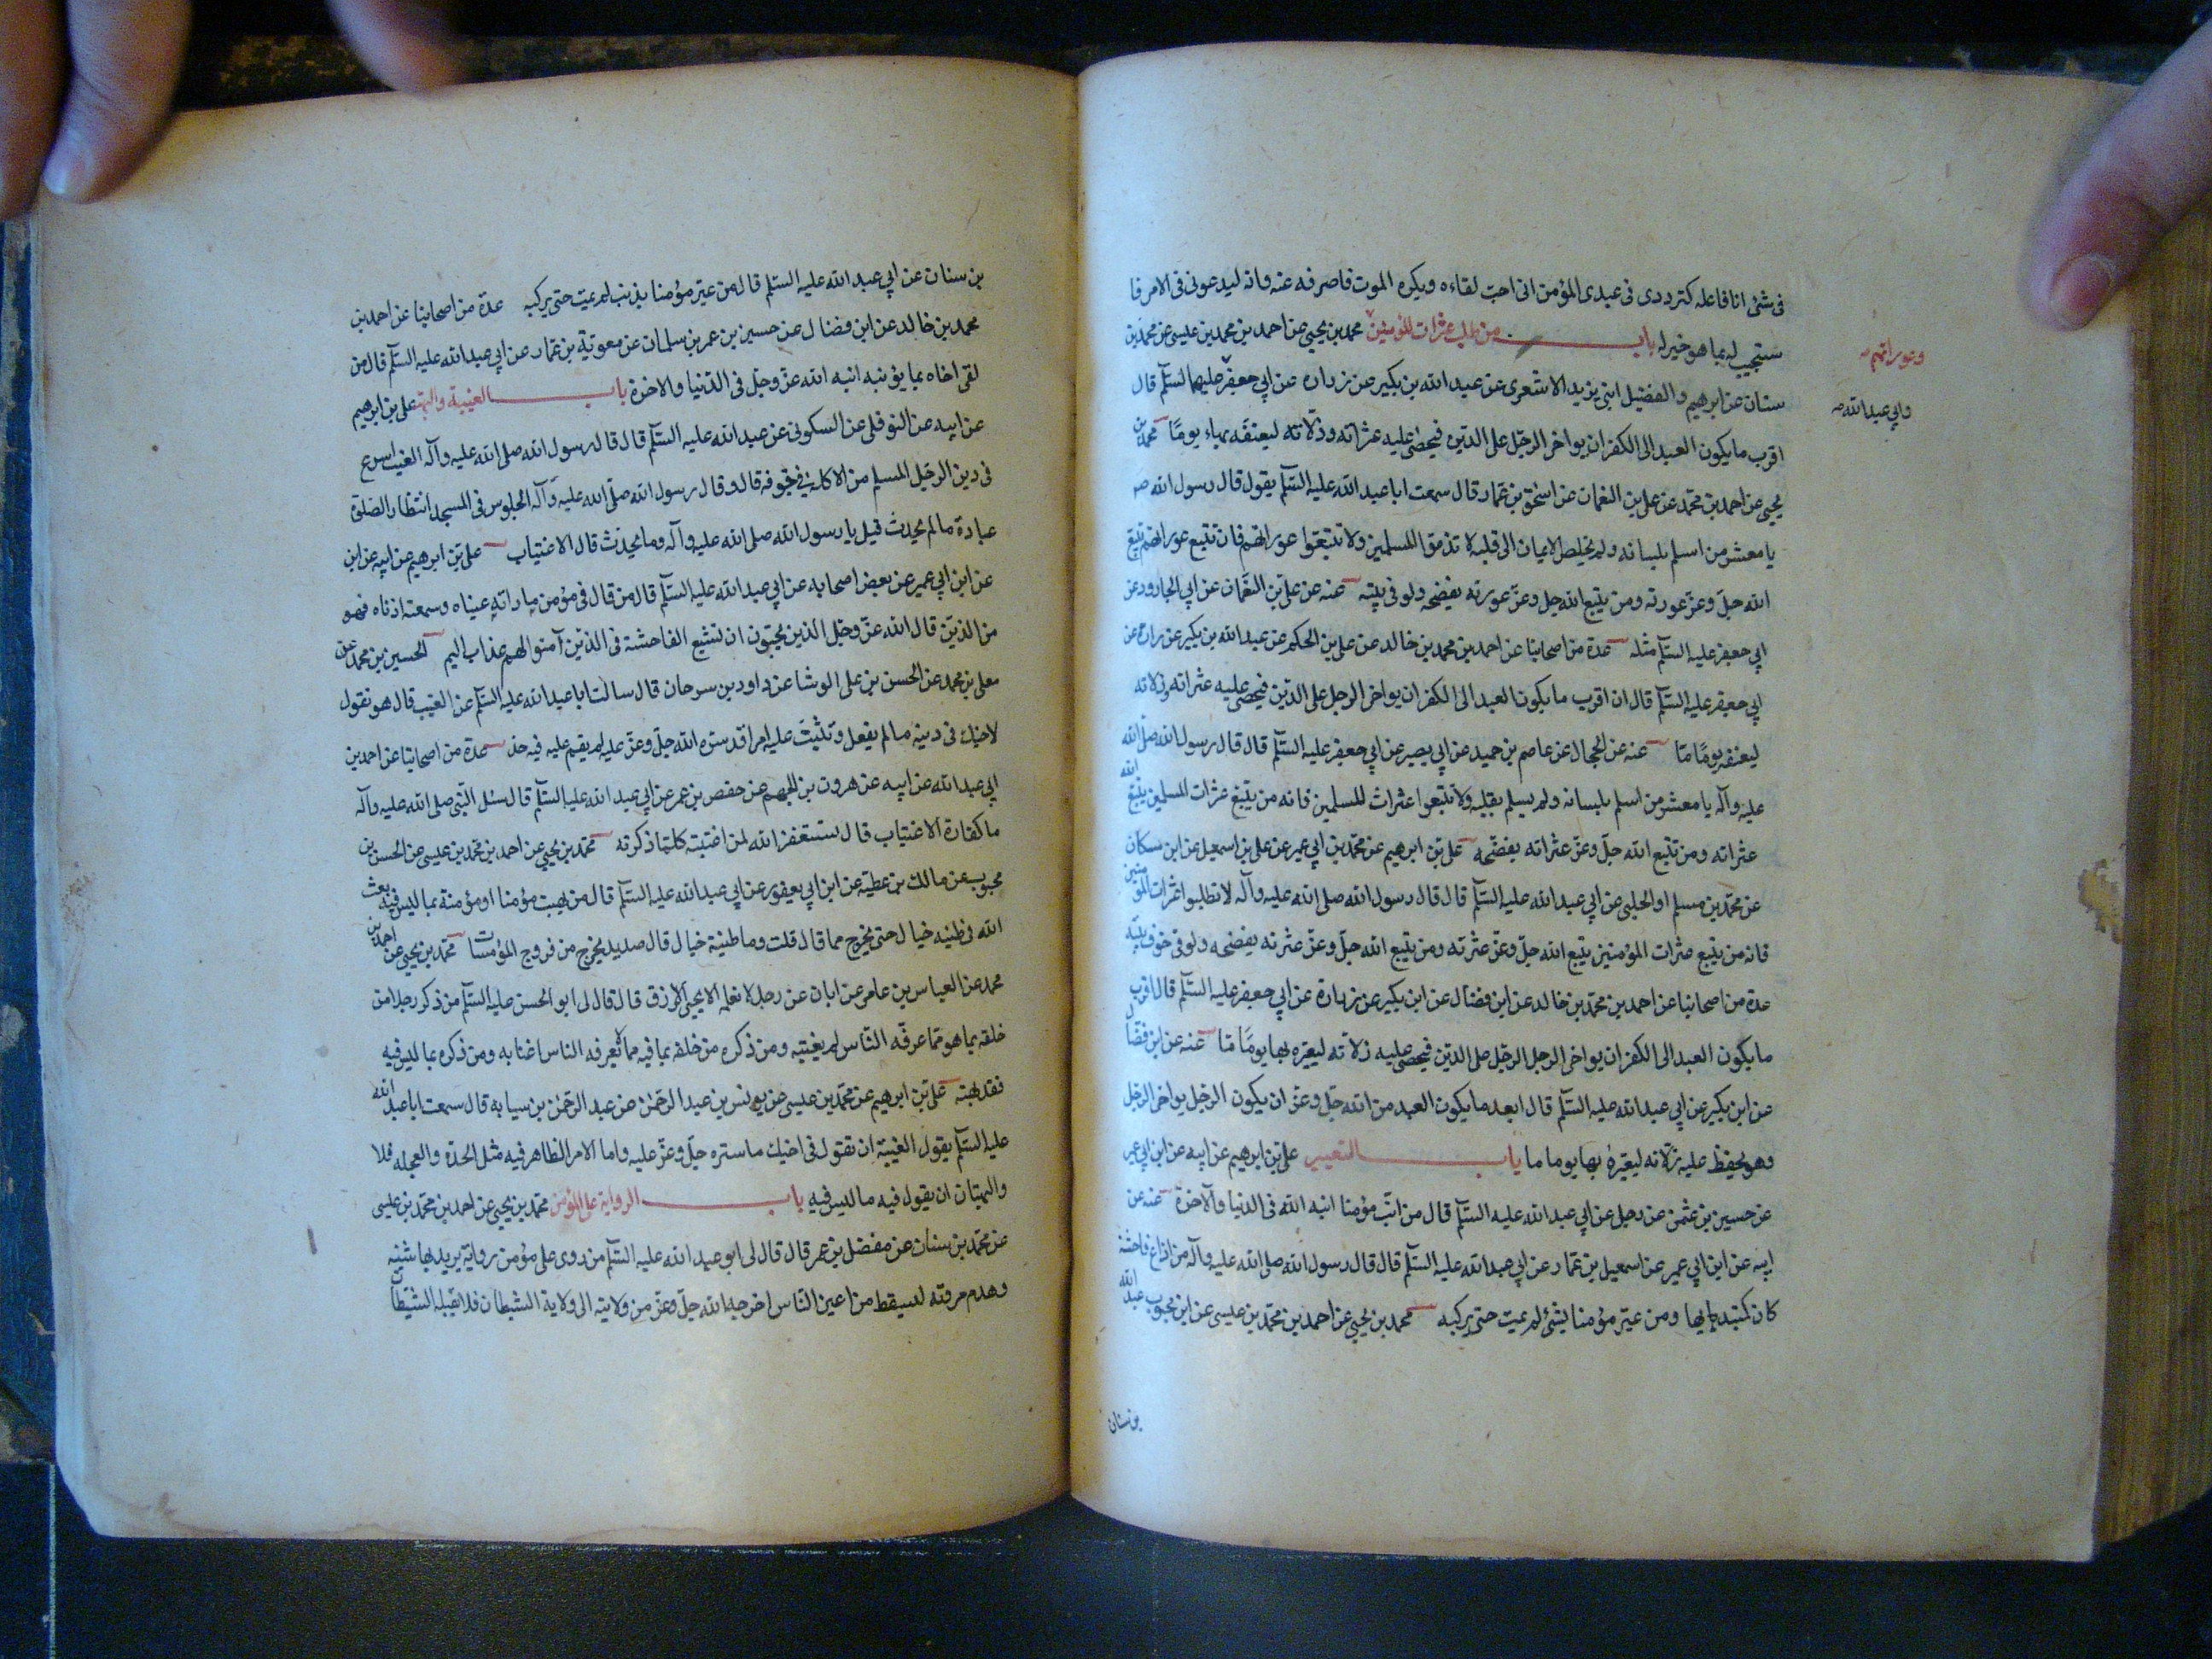 فى شئ انا فاعله كترددى فى عبدى المؤمن انى احب لقاءه ويكره الموت فاصرفه عنه وانه ليدعونى فى الامر فا
ستجيب له بما هو خير له باب من طلب عثرات المؤمنين محمد بن يحيى عن احمد بن محمد بن عيسى عن محمد بن
وعوراتهم صح
سنان عن ابرهيم والفضيل ابنى يزيد الاشعرى عن عبد الله بن بكير عن زراره عن ابى جعفر عليهما السلم قال
وابى عبد الله صح
اقرب ما يكون العبد الى الكفر ان يواخى الرجل على الدين فيحصى عليه عثراته وزلاته ليعنفه بها يومًا محمد بن
يحيى عن احمد بن محمد عن على بن النعمان عن اسحٰق بن عمار قال سمعت ابا عبد الله عليه السلم يقول قال رسول الله ص
يا معشر من اسلم بلسانه ولم يخلص الايمان الى قلبه لا تذموا المسلمين ولا تتبعوا عوراتهم فان تتبع عوراتهم تتبع
الله جل وعز عورته ومن يتبع الله جل وعز عورته يفضحه ولو فى بيته عنه عن على بن النعمان عن ابى الجارود عن
ابى جعفر عليه السلم مثله عدة من اصحابنا عن احمد بن محمد بن خالد عن على بن الحكم عن عبد الله بن بكير عن زرارة عن
ابى جعفر عليه السلم قال ان اقرب ما يكون العبد الى الكفر ان يواخى الرجل على الدين فيحصى عليه عثراته وزلاته
ليعنفه يومًا مّا عنه عن الحجال عن عاصم بن حميد عن ابى بصير عن ابى جعفر عليه السلم قال قال رسول الله صلى الله
عليه وآله يا معشر من اسلم بلسانه ولم يسلم بقلبه ولا تتبعوا عثرات المسلمين فانه من يتبع عثرات المسلمين يتبع الله
عثراته ومن تتبع الله جل وعز عثراته يفضحه على بن ابرهيم عن محمد بن ابى عمير عن على بن اسمعيل عن ابن مسكان
عن محمد بن مسلم او الحلبى عن ابى عبد الله عليه السلم قال قال رسول الله صلى الله عليه وآله لا تطلبوا عثرات المؤمنين
فانه من يتبع عثرات المؤمنين يتبع الله جل وعز عثرته ومن يتبع الله جل وعز عثرته يفضحه ولو فى جوف بيته
عدة من اصحابنا عن احمد بن محمد بن خالد عن ابن فضال عن ابن بكير عن زرارة عن ابى جعفر عليه السلم قال اقرب
ما يكون العبد الى الكفر ان يواخى الرجل الرجل على الدين فيحصى عليه زلاته ليعيره بها يومًا مّا عنه عن ابن فضال
عن ابن بكير عن ابى عبد الله عليه السلم قال ابعد ما يكون العبد من الله جل وعز ان يكون الرجل يواخى الرجل
وهو يحفظ عليه زلاته ليعيره بها يوما ما باب التعيير على بن ابرهيم عن ابيه عن ابن ابى عمير
عن حسين بن عثمن عن رجل عن ابى عبد الله عليه السلم قال من انب مؤمنا انبه الله فى الدنيا والآخرة عنه عن
ابيه عن ابن ابى عمير عن اسمعيل بن عمار عن ابى عبد الله عليه السلم قال قال رسول الله صلى الله عليه وآله من اذاع فاحشة
كان كمبتديها ومن عير مؤمنا بشئ لم يمت حتى يركبه محمد بن يحيى عن احمد بن محمد بن عيسى عن ابن محبوب عبد الله
بن سنان
بن سنان عن ابى عبد الله عليه السلم قال من عير مؤمنا بذنب لم يمت حتى يركبه عدة من اصحابنا عن احمد بن
محمد بن خالد عن ابن فضال عن حسين بن عمر بن سلمان عن معوية بن عمار عن ابى عبد الله عليه السلم قال من
لقى اخاه بما يؤنبه انبه الله عز وجل فى الدنيا والاخرة باب الغيبة والبهت على بن ابرهيم
عن ابيه عن النوفلى عن السكونى عن عبد الله عليه السلم قال قال رسول الله صلى الله عليه وآله الغيبة اسرع
فى دين الرجل المسلم من الاكلة فى جوفه قال وقال رسول الله صلى الله عليه وآله الجلوس فى المسجد انتظار الصلوة
عبادة ما لم يحدث قيل يا رسول الله صلى الله عليه وآله وما يحدث قال الاغتياب على بن ابرهيم عن ابيه عن ابن
عن ابن ابى عمير عن بعض اصحابه عن ابى عبد الله عليه السلم قال من قال فى مؤمن ما راته عيناه وسمعته اذناه فهو
من الذين قال الله عز وجل الذين يحبون ان تشيع الفاحشة فى الذين آمنوا لهم عذاب اليم الحسين بن محمد عن
معلى بن محمد عن الحسن بن على الوشا عن داود بن سرحان قال سالت ابا عبد الله عليه السلم عن الغيبة قال هو تقول
لاخيك فى دينه ما لم يفعل وتثبت عليه امرا قد ستره الله جل وعز عليه لم يقم عليه فيه حد عدة من اصحابنا عن احمد بن
ابى عبد الله عن ابيه عن هرون بن الجهم عن حفص بن عمر عن ابى عبد الله عليه السلم قال سئل النبى صلى الله عليه وآله
ما كفارة الاغتياب قال تستغفر الله لمن اغتبته كلما ذكرته محمد بن يحيى عن احمد بن محمد بن عيسى عن الحسن بن
محبوب عن مالك بن عطية عن ابن ابى يعفور عن ابى عبد الله عليه السلم قال من بهت مؤمنا او مؤمنة بما ليس فيه بعثه
الله فى طينه خبال حتى يخرج مما قال قلت وما طينة خبال قال صديد يخرج من فروج المؤمسات محمد بن يحيى عن احمد بن
محمد عن العباس بن عامر عن ابان عن رجل لا نعلمه الا يحيى الازرق قال قال لى ابو الحسن عليه السلم من ذكر رجلا من
خلفه بما هو مما عرفه الناس لم يغتبه ومن ذكره من خلفه بما فيه مما لا يعرفه الناس اغتابه ومن ذكره بما ليس فيه
فقد بهته على بن ابرهيم عن محمد بن عيسى عن يونس بن عبد الرحمٰن عن عبد الرحمٰن بن سيابه قال سمعت ابا عبد الله
عليه السلم يقول الغيبة ان تقول فى اخيك ما ستره جل وعز عليه واما الامر الظاهر فيه مثل الحدة والعجله فلا
والبهتان ان يقول فيه ما ليس فيه باب الرواية على المؤمن محمد بن يحيى عن احمد بن محمد بن عيسى
عن محمد بن سنان عن مفضل بن عمر قال قال لى ابو عبد الله عليه السلم من روى على مؤمن رواية يريد بها شينه
وهدم مروته ليسقط من اعين الناس اخرجه الله جل وعز من ولايته الى ولاية الشيطان فلا يقبله الشيطان